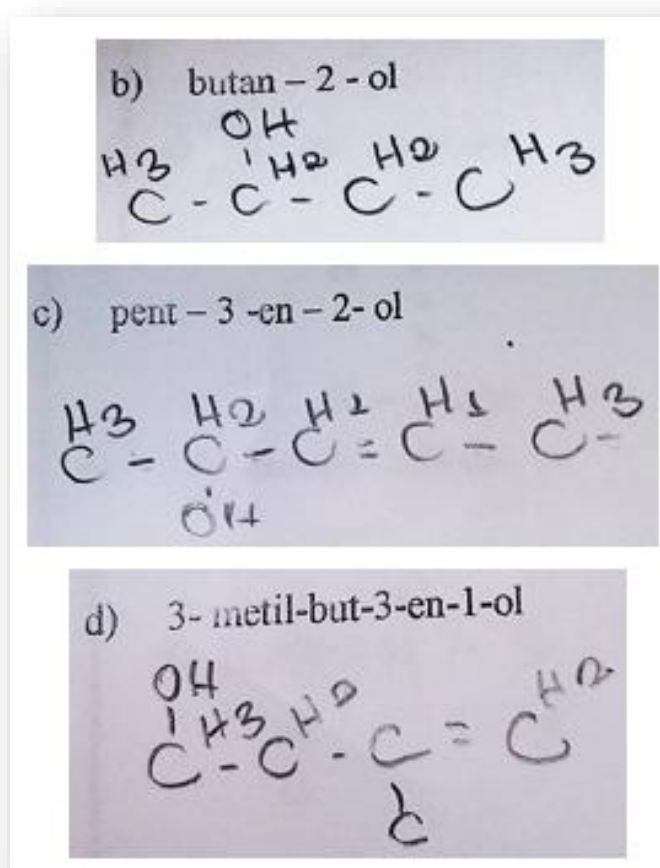 b) butan – 2 - ol
OH
H3 H2 H2 H3
C - C - C - C
c) pent – 3 -en – 2- ol
H3 H2 H1 H1 H3
C - C - C = C - C -
OH
d) 3- metil-but-3-en-1-ol
OH
H3 H2 H2
C - C - C = C
C